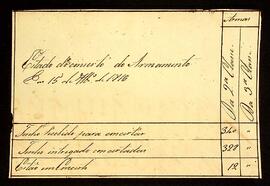 Armas
Estado do concerto do Armamento
Em 15 de de 1716
Da 2ª Clase
Da 3ª Clase
Tenho recebido para concertar 340 "
Tenho entregado concertadas 328 "
Estão em Concerto 12 "